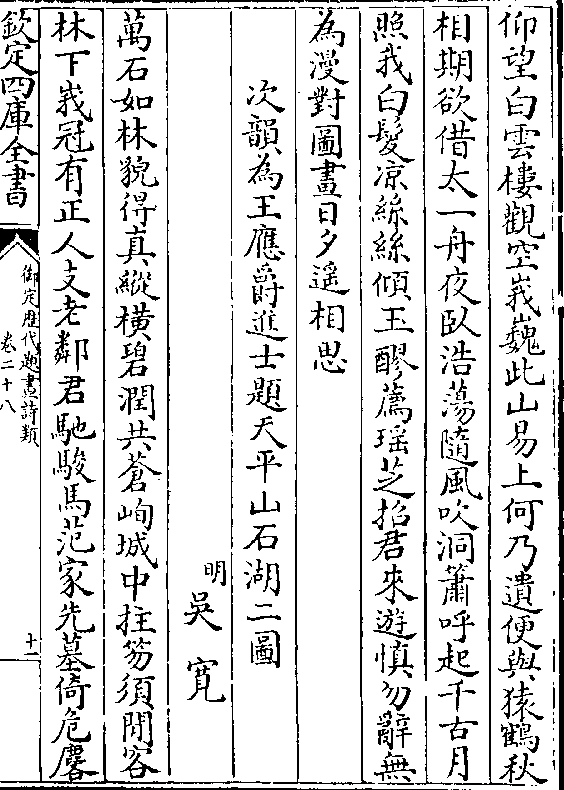 仰望白雲樓觀空峩巍此山易上何乃遺便與猿鶴秋
相期欲借太一舟夜臥浩蕩隨風吹洞簫呼起千古月
照我白髮凉絲絲傾玉醪薦瑶芝招君來遊慎勿辭無
為漫對圖畫日夕遥相思
次韻為王應爵進士題天平山石湖二圖
明吳寛
萬石如林貌得真縱横碧潤共蒼峋城中拄笏須閒客
林下峩冠有正人支老鄰君馳駿馬范家先墓倚危麐
欽定四庫全書
御定歴代題畫詩類
卷二十八
十一